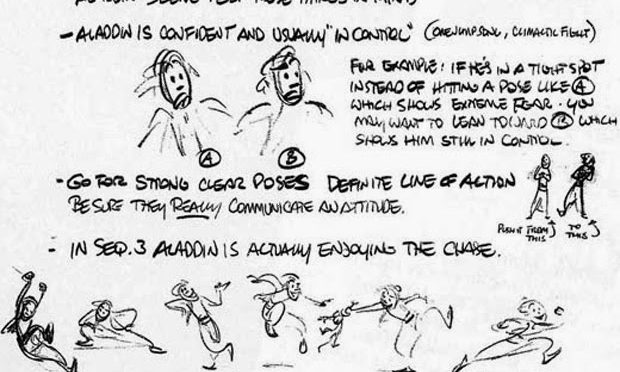 - ALADDIN IS CONFIDENT AND USUALLY "IN CONTROL" (ONE JUMP SONG, CLIMACTIC FIGHT)
FOR EXAMPLE: IF HE'S IN A TIGHT SPOT
INSTEAD OF HITTING A POSE LIKE A
WHICH SHOWS EXTREME FEAR - YOU
MAY WANT TO LEAN TOWARD B WHICH
SHOWS HIM STILL IN CONTROL.
A B
- GO FOR STRONG CLEAR POSES DEFINITE LINE OF ACTION
BE SURE THEY REALLY COMMUNICATE AN ATTITUDE.
PUSH IT FROM THIS
TO THIS
- IN SEQ. 3 ALADDIN IS ACTUALLY ENJOYING THE CHASE.